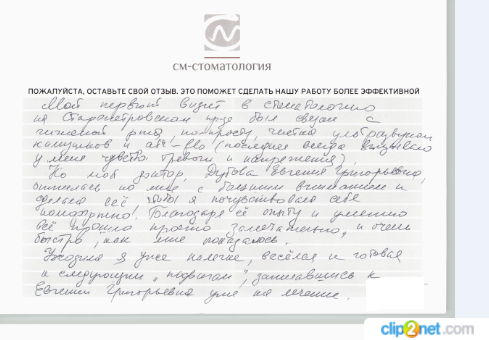 СМ-СТОМАТОЛОГИЯ
ПОЖАЛУЙСТА, ОСТАВЬТЕ СВОЙ ОТЗЫВ. ЭТО ПОМОЖЕТ СДЕЛАТЬ НАШУ РАБОТУ БОЛЕЕ ЭФФЕКТИВНОЙ
Мой первый визит в стоматологию
на Старопетровском пр-де был связан с
гигиеной рта, попросту, чистка ультразвуком
камушков и air-flo (последнее всегда вызывало
у меня чувство тревоги и напряжения).
Но мой доктор, Евгения Григорьевна,
отнеслась ко мне с большим вниманием и
сделала всё чтобы я почувствовала себя
комфортно! Благодаря её опыту и умению
всё прошло просто замечательно, и очень
быстро, как мне показалось.
Уходила я уже налегке, весёлая и готовая
к следующим "подвигам", записавшись к
Евгении Григорьевне уже на лечение.
clip2net.com